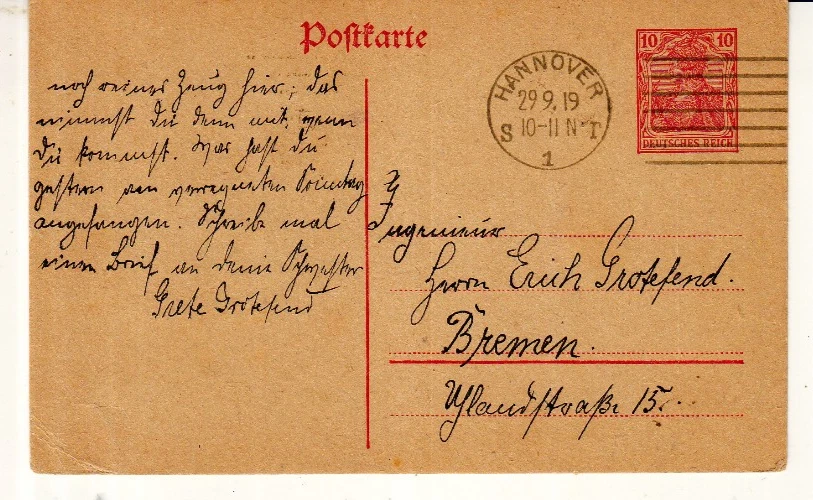 Postkarte
10 10
DEUTSCHES REICH
HANNOVER
29 9. 19
S 10-11 N T
1
noch reines Zeug hier; das
nimmst du dann mit, wenn
Du kommst. Was hast du
gestern am verregneten Sonntag
angefangen. Schreibe mal
einen Brief an deine Schwester
Grete Grotefend
Ingenieur
Herrn Erich Grotefend.
Bremen.
Uhlandstraße 15.